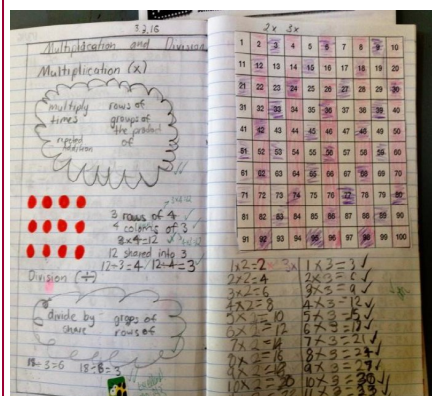 3.2.16
Multiplication and Division
Multiplication (x)
multiply rows of
times groups of
the product
of
addition
3 rows of 4
4 colomns of 3
3x4=12
12 shared into 3
12÷3=4 12÷4=3
Division (÷)
divide by groups of
share rows of
18÷6=3
2x 3x
1 2 3 4 5 6 7 8 9 10
11 12 13 14 15 16 17 18 19 20
21 22 23 24 25 26 27 28 29 30
31 32 33 34 35 36 37 38 39 40
41 42 43 44 45 46 47 48 49 50
51 52 53 54 55 56 57 58 59 60
61 62 63 64 65 66 67 68 69 70
71 72 73 74 75 76 77 78 79 80
81 82 83 84 85 86 87 88 89 90
91 92 93 94 95 96 97 98 99 100
1x2=2
2x2=4
3x2=6
4x2=8
5x2=10
6x2=12
7x2=14
8x2=16
9x2=18
10x2=20
1x3=3
2x3=6
3x3=9
4x3=12
5x3=15
6x3=18
7x3=21
8x3=24
9x3=27
10x3=30
11x3=33